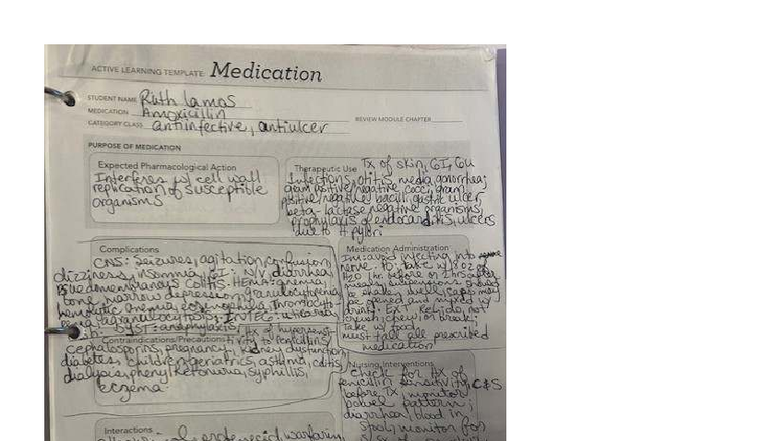 ACTIVE LEARNING TEMPLATE: Medication
STUDENT NAME Ruth Lamas
MEDICATION Amoxicillin
REVIEW MODULE CHAPTER
CATEGORY CLASS antiinfective, antiulcer
PURPOSE OF MEDICATION
Expected Pharmacological Action
Interferes w/ cell wall
replication of susceptible
organisms
Therapeutic Use Tx of skin, GI, GU
infections, otitis media, gonorrhea;
gram positive/negative cocci, gram
positive/negative bacilli, gastric ulcer,
beta-lactase negative organisms,
prophylaxis of endocarditis, ulcers
due to H pylori
Complications
CNS: Seizures, agitation, confusion,
dizziness, insomnia, GI: N/V, diarrhea,
Pseudomembranous Colitis: HEMA: anemia,
bone marrow depression, granulocytopenia,
hemolytic anemia, eosinophilia, thrombocyto
agranulocytosis, INTEG: urticaria,
SYST: anaphylaxis
Contraindications/Precautions Hx of hypersensi-
tivity to penicillins,
cephalosporins, pregnancy, kidney dysfunction,
diabetes, children, geriatrics, asthma, colitis,
dialysis, phenylketonuria, syphillis,
eczema
Medication Administration
IM: avoid injecting into
nerve. to take w/ 8 oz of
H2O 1 hr before or 2 hrs after
meals, suspensions should
be shake well, caps may
be opened and mixed w/
drink: Ext Rel: do not
crush, chew, or break.
Take w/ food.
must take all prescribed
medication
Nursing Interventions
Check for Hx of
penicillin sensitivity, C&S
before Tx, monitor
bowel pattern;
diarrhea, blood in
stool, monitor for
Interactions
warfarin,